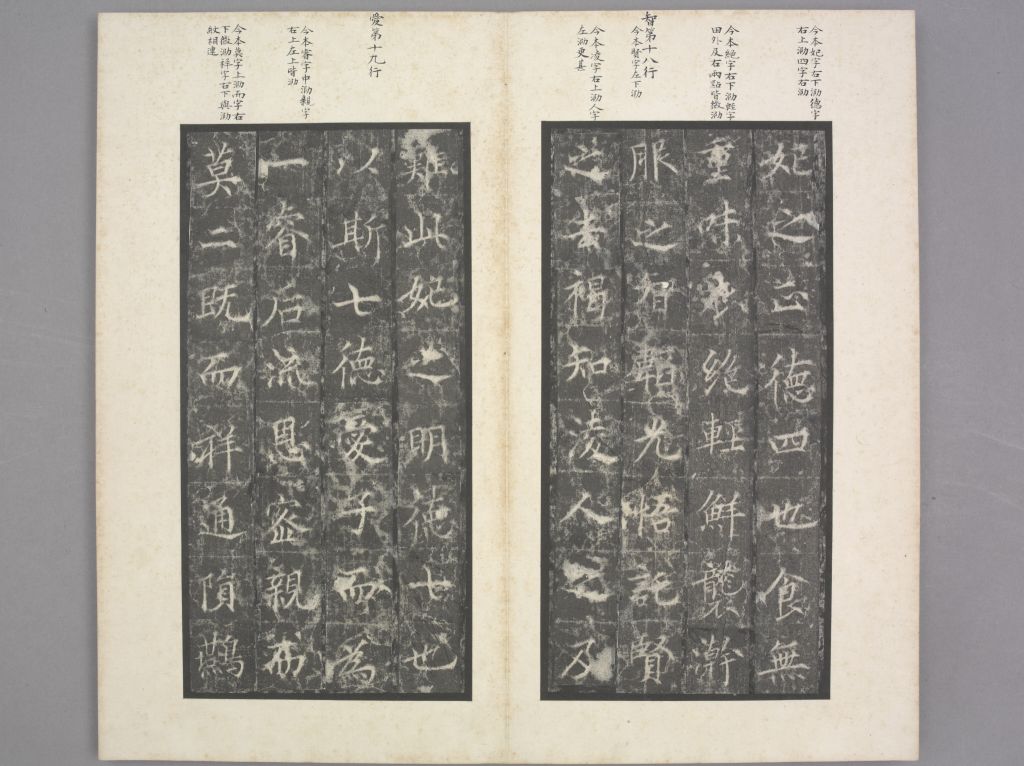 今本妃字右下泐德字
右上泐四字右泐
今本絕字右下泐輕字
田外及右兩點皆微泐
智第十八行
今本賢字左下泐
今本凌字右上泐人字
左泐更甚
妃之正德四也食無
重味衣絕輕鮮襲澣
服之智韜光悟託賢
之去褐知凌人之及
愛第十九行
今本睿字中泐親字
右上左上皆泐
今本莫字上泐而字右
下微泐祥字右下與泐
紋相連
難此妃之明德七也
以斯七德愛子而為
一睿后流恩密親布
莫二既而祥通隕鵲